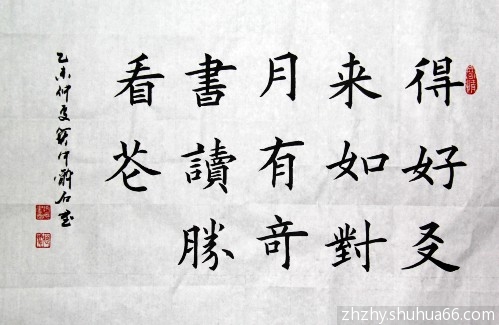 得好友
来如對
月有奇
書讀勝
看花
乙未仲夏
zhzhy.shuhua66.com